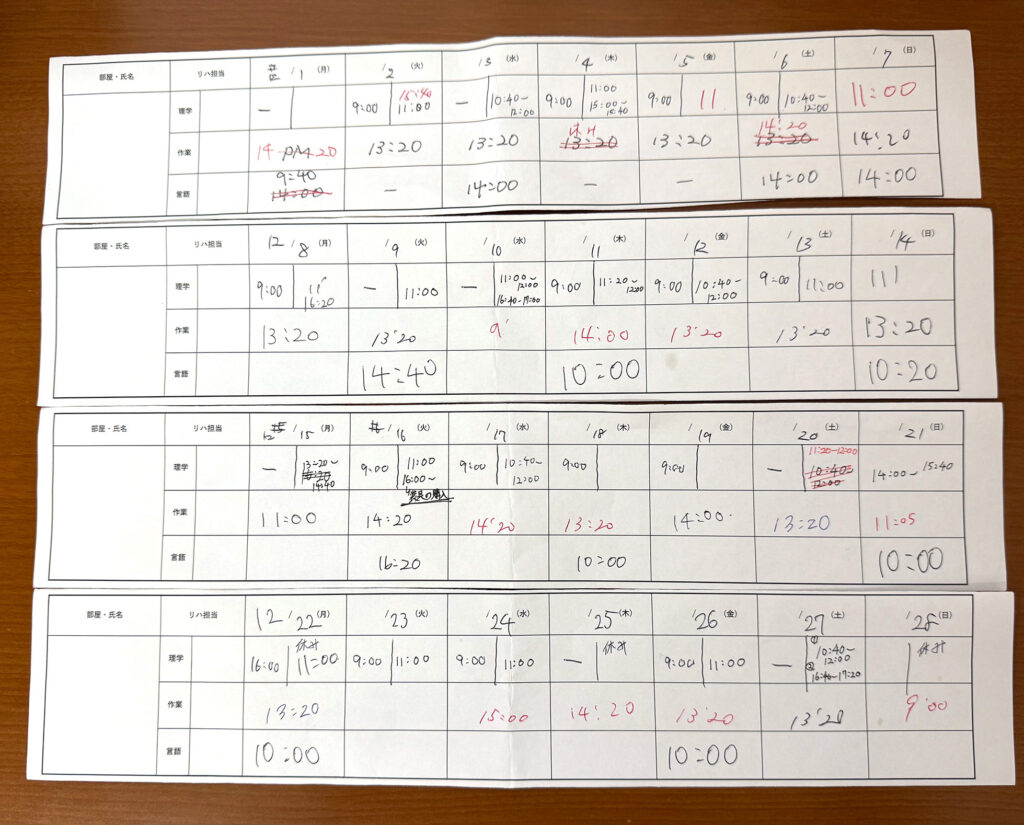 部屋・氏名 リハ担当 12/1 (月) /2 (火) /3 (水) /4 (木) /5 (金) /6 (土) /7 (日)
理学 — 9:00 15:40 — 10:40~ 9:00 11:00 9:00 11 9:00 10:40~ 11:00
11:00 12:00 15:00~ 12:00
15:40
休み 14:20
作業 14 PM 20 13:20 13:20 13:20 13:20 13:20 14:20
9:40
言語 14:00 — 14:00 — — 14:00 14:00
部屋・氏名 リハ担当 12/8 (月) /9 (火) /10 (水) /11 (木) /12 (金) /13 (土) /14 (日)
理学 9:00 11' — 11:00 — 11:00~ 9:00 11:20~ 9:00 10:40~ 9:00 11:00 111
16:20 12:00 12:00 12:00
16:40~17:00
作業 13:20 13'20 9' 14:00 13'20 13'20 13:20
言語 14:40 10:00 10:20
部屋・氏名 リハ担当 12/15 (月) /16 (火) /17 (水) /18 (木) /19 (金) /20 (土) /21 (日)
11:20-12:00
理学 — 13:20~ 9:00 11:00 9:00 10:40~ 9:00 9:00 — 10:40~ 14:00~15:40
14:40 16:00~ 12:00 12:00
の購入
作業 11:00 14:20 14'20 13:20 14:00 13:20 11:05
言語 16:20 10:00 10:00
部屋・氏名 リハ担当 12/22 (月) /23 (火) /24 (水) /25 (木) /26 (金) /27 (土) /28 (日)
休み 休み ① 10:40~ 休み
理学 16:00 11:00 9:00 11:00 9:00 11:00 — 9:00 11:00 — 12:00
② 16:40~17:20
作業 13:20 15:00 14:20 13'20 13'20 9:00
言語 10:00 10:00